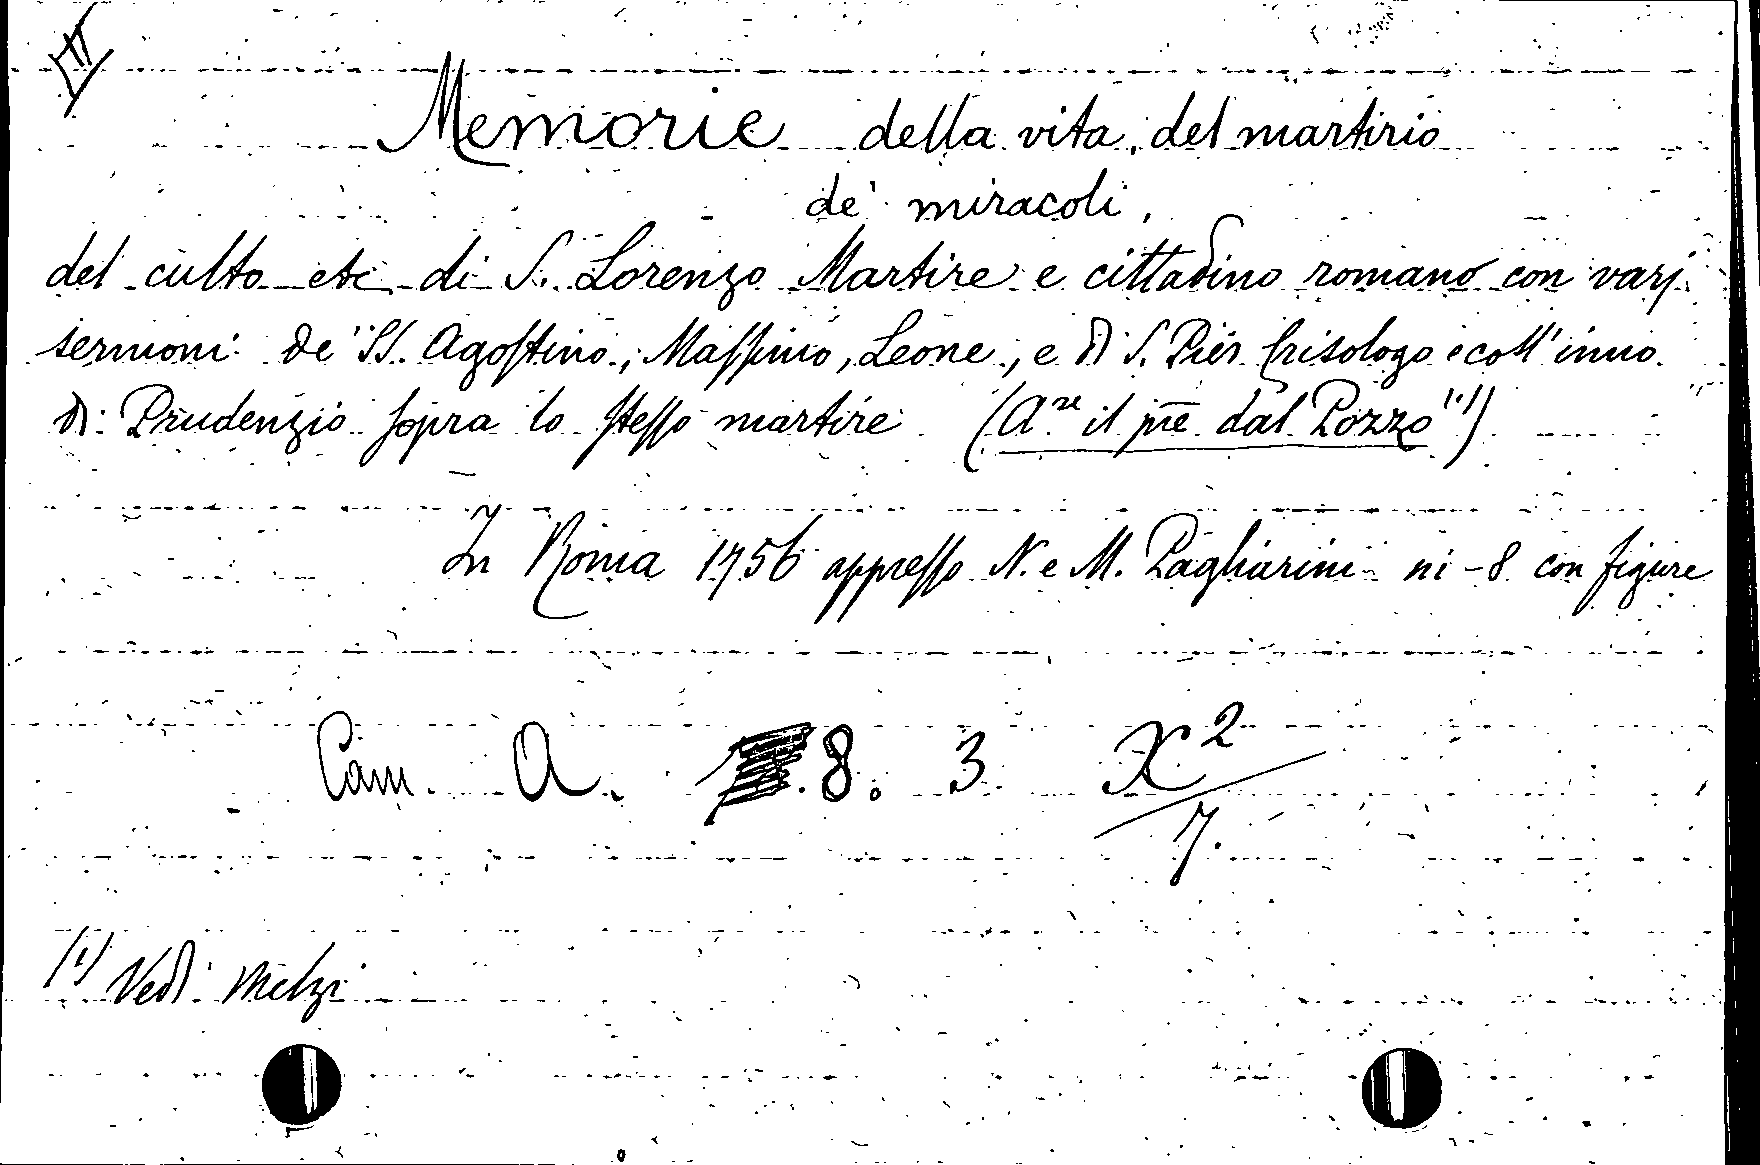 Memorie della vita, del martirio
de' miracoli,
del culto etc di S. Lorenzo Martire e cittadino romano con varj
sermoni de' SS. Agostino, Massimo, Leone, e di S. Pier Crisologo e coll'inno
di Prudenzio sopra lo stesso martire (Are il pre dal Pozzo (1))
In Roma 1756 appresso N. e M. Pagliarini in-8 con figure
Cam. A. 8. 3 X2/7.
(1) Vedi Melzi